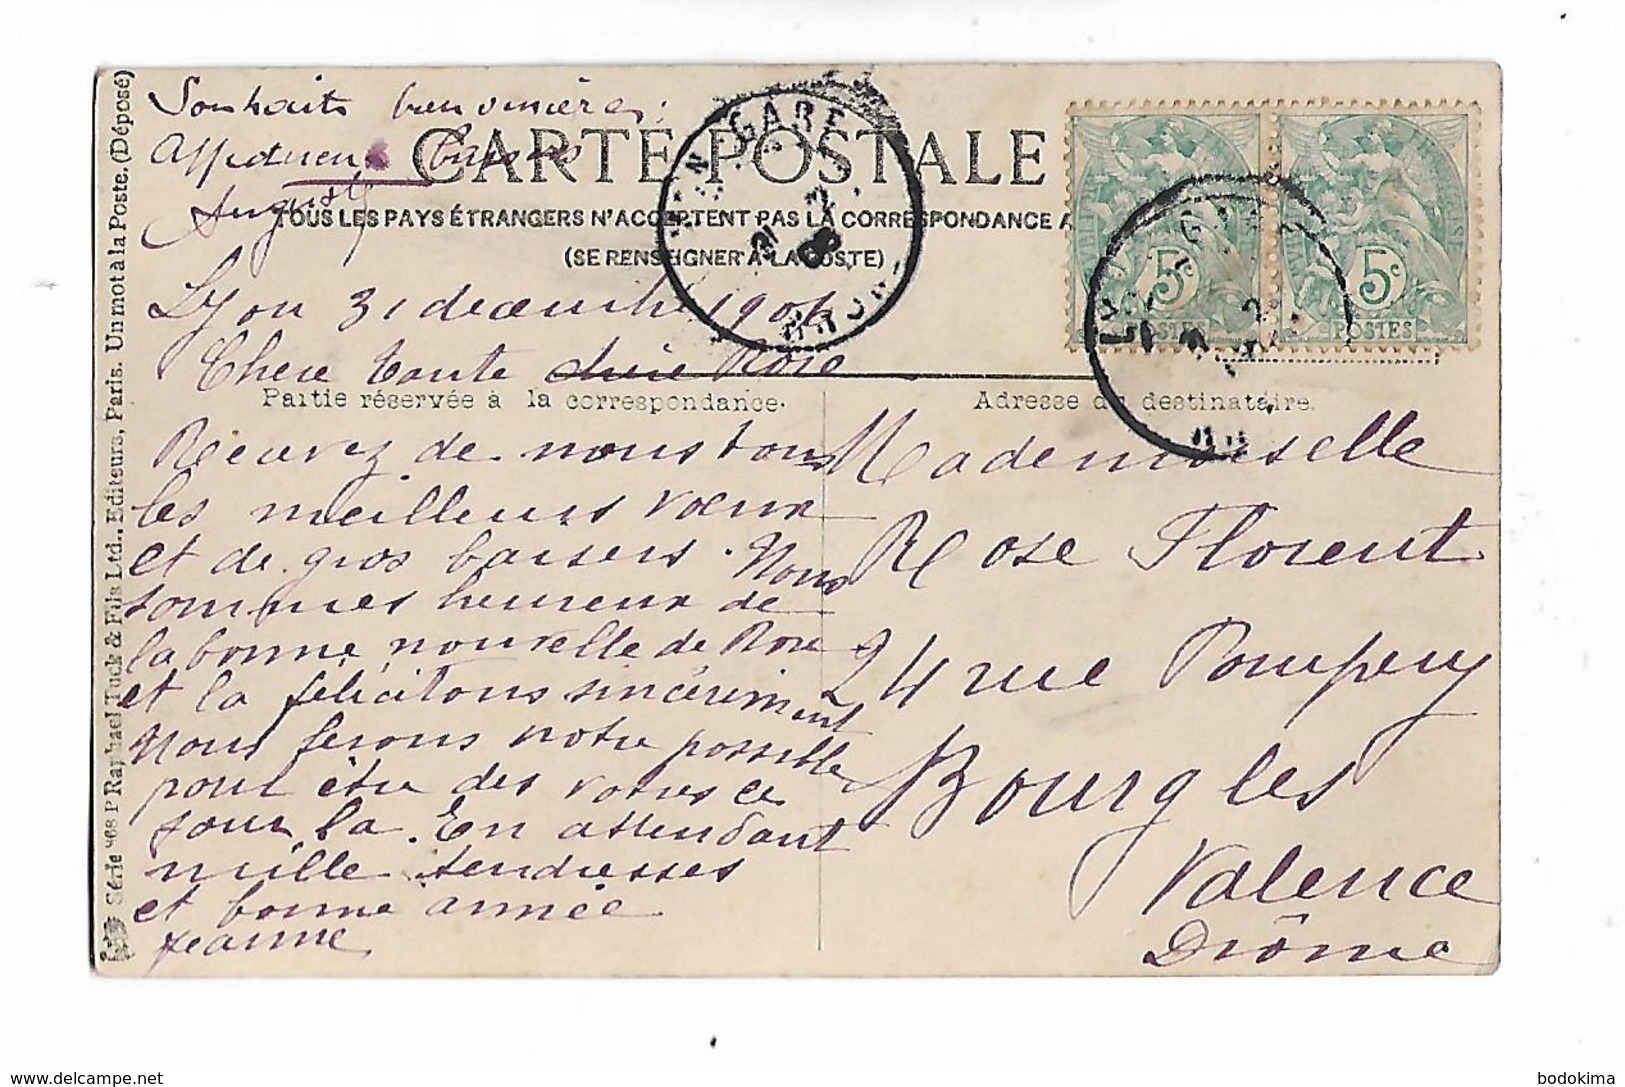 Souhaits bien sincères
Affectueux baisers
Auguste
CARTE POSTALE
TOUS LES PAYS ÉTRANGERS N'ACCEPTENT PAS LA CORRESPONDANCE A
(SE RENSEIGNER A LA POSTE)
Lyon 31 décembre 1906
Chere tante chère Rose
Partie réservée à la correspondance.
Recevez de nous tous
les meilleurs vœux
et de gros baisers. Nous
sommes heureux de
la bonne nouvelle de Rose
et la félicitons sincèrement
Nous ferons notre possible
pour être des votres ce
jour la. En attendant
mille tendresses
et bonne année
Jeanne
Adresse du destinataire.
Mademoiselle
Rose Florent
24 rue Pompery
Bourg les
Valence
Drôme
Série 968 P Raphael Tuck & Fils Ltd., Editeurs, Paris. Un mot à la Poste. (Déposé)
GARE
LYON GARE
5c
POSTES
5c
POSTES
www.delcampe.net
bodokima